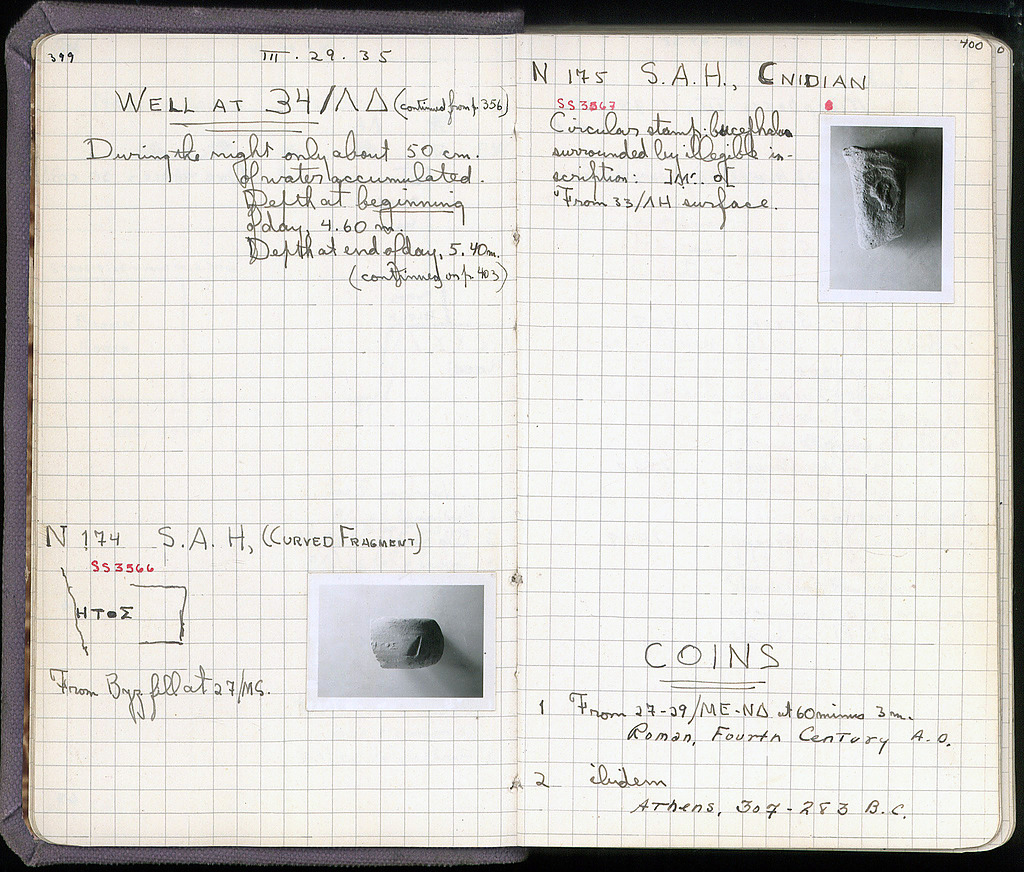 399
III . 29. 35
WELL AT 34/ΛΔ (continued from p. 356)
During the night only about 50 cm.
of water accumulated.
Depth at beginning
of day, 4.60 m.
Depth at end of day, 5.40 m.
(continued on p. 403)
N 174 S. A. H, (CURVED FRAGMENT)
SS 3566
ΗΤΟΣ
From Byz fill at 27/ΜΣ.
400
N 175 S.A.H., CNIDIAN
SS 3567
Circular stamp: bucephalos
surrounded by illegible in-
scription: ]Μ . . ο[
From 33/ΛΗ surface.
COINS
1 From 27-29/ΜΕ-ΝΔ at 60 minus 3 m.
Roman, Fourth Century A.D.
2 ibidem
Athens, 307-283 B.C.